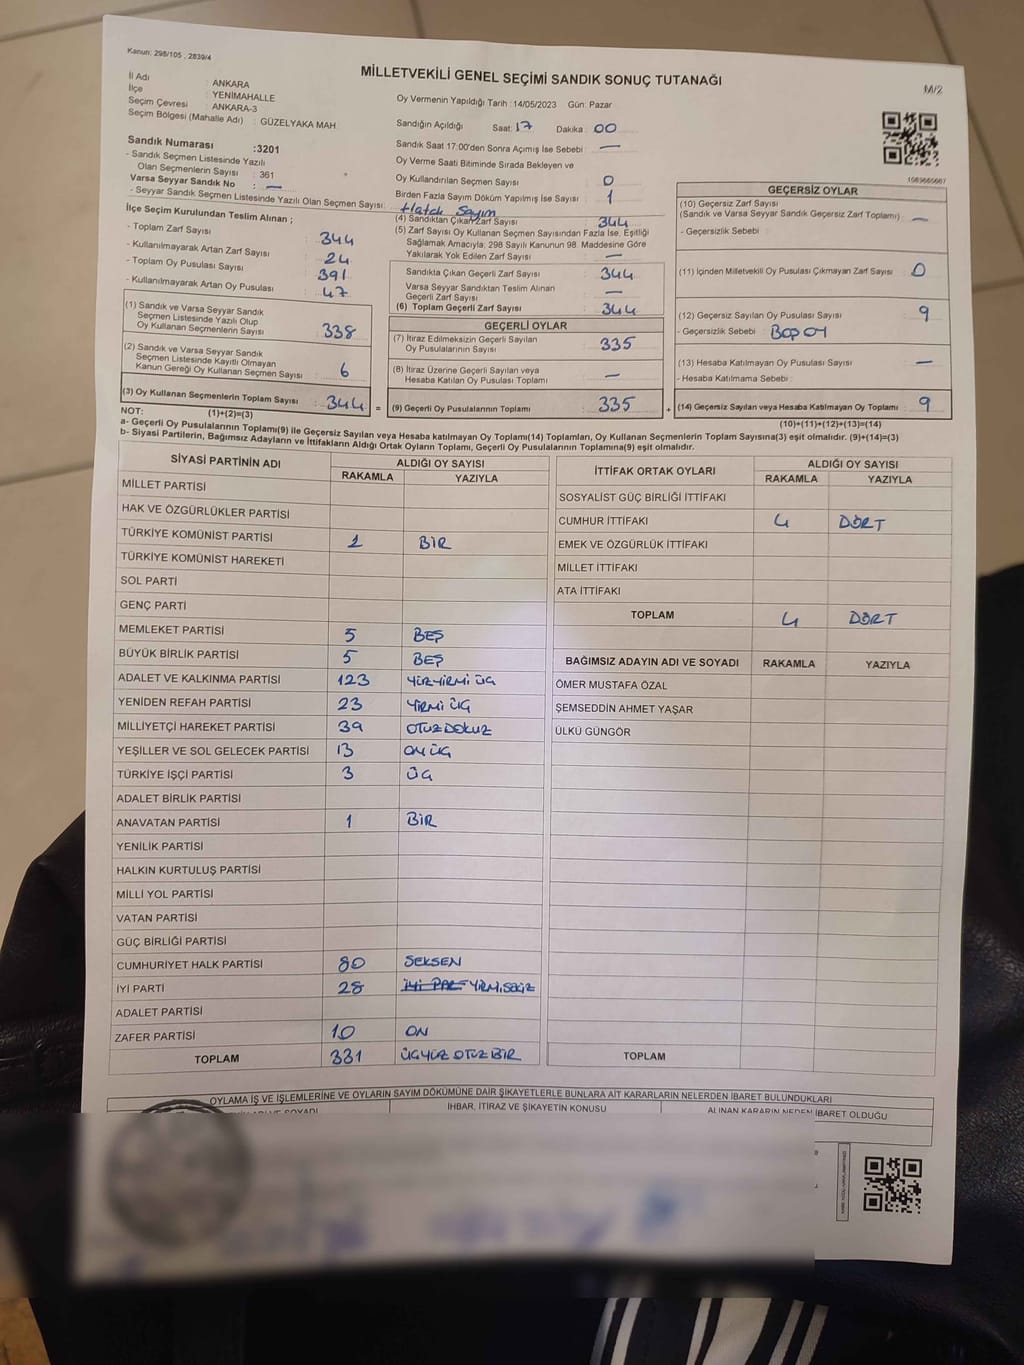 Kanun: 298/105 , 2839/4
MİLLETVEKİLİ GENEL SEÇİMİ SANDIK SONUÇ TUTANAĞI
M/2
İl Adı : ANKARA
İlçe : YENİMAHALLE
Seçim Çevresi : ANKARA-3
Seçim Bölgesi (Mahalle Adı) : GÜZELYAKA MAH
Oy Vermenin Yapıldığı Tarih :14/05/2023 Gün: Pazar
Sandığın Açıldığı Saat: 17 Dakika 00
Sandık Saat 17:00'den Sonra Açımış İse Sebebi : —
Oy Verme Saati Bitiminde Sırada Bekleyen ve
Oy Kullandırılan Seçmen Sayısı 0
Birden Fazla Sayım Döküm Yapılmış İse Sayısı 1
Hatalı Sayım
Sandık Numarası :3201
- Sandık Seçmen Listesinde Yazılı
Olan Seçmenlerin Sayısı : 361
Varsa Seyyar Sandık No : —
- Seyyar Sandık Seçmen Listesinde Yazılı Olan Seçmen Sayısı:
İlçe Seçim Kurulundan Teslim Alınan ;
- Toplam Zarf Sayısı : 344
- Kullanılmayarak Artan Zarf Sayısı : 24
- Toplam Oy Pusulası Sayısı : 391
- Kullanılmayarak Artan Oy Pusulası : 47
(1) Sandık ve Varsa Seyyar Sandık
Seçmen Listesinde Yazılı Olup
Oy Kullanan Seçmenlerin Sayısı : 338
(2) Sandık ve Varsa Seyyar Sandık
Seçmen Listesinde Kayıtlı Olmayan
Kanun Gereği Oy Kullanan Seçmen Sayısı : 6
(3) Oy Kullanan Seçmenlerin Toplam Sayısı : 344 =
(4) Sandıktan Çıkan Zarf Sayısı 344
(5) Zarf Sayısı Oy Kullanan Seçmen Sayısından Fazla İse, Eşitliği
Sağlamak Amacıyla; 298 Sayılı Kanunun 98. Maddesine Göre
Yakılarak Yok Edilen Zarf Sayısı : —
Sandıkta Çıkan Geçerli Zarf Sayısı : 344
Varsa Seyyar Sandıktan Teslim Alınan
Geçerli Zarf Sayısı : —
(6) Toplam Geçerli Zarf Sayısı : 344
GEÇERLİ OYLAR
(7) İtiraz Edilmeksizin Geçerli Sayılan
Oy Pusulalarının Sayısı : 335
(8) İtiraz Üzerine Geçerli Sayılan veya
Hesaba Katılan Oy Pusulası Toplamı : —
(9) Geçerli Oy Pusulalarının Toplamı : 335 +
1083665667
GEÇERSİZ OYLAR
(10) Geçersiz Zarf Sayısı
(Sandık ve Varsa Seyyar Sandık Geçersiz Zarf Toplamı) : —
- Geçersizlik Sebebi :
(11) İçinden Milletvekili Oy Pusulası Çıkmayan Zarf Sayısı : 0
(12) Geçersiz Sayılan Oy Pusulası Sayısı : 9
- Geçersizlik Sebebi : Boş oy
(13) Hesaba Katılmayan Oy Pusulası Sayısı : —
- Hesaba Katılmama Sebebi :
(14) Geçersiz Sayılan veya Hesaba Katılmayan Oy Toplamı : 9
NOT: (1)+(2)=(3)
(10)+(11)+(12)+(13)=(14)
a- Geçerli Oy Pusulalarının Toplamı(9) ile Geçersiz Sayılan veya Hesaba katılmayan Oy Toplamı(14) Toplamları, Oy Kullanan Seçmenlerin Toplam Sayısına(3) eşit olmalıdır. (9)+(14)=(3)
b- Siyasi Partilerin, Bağımsız Adayların ve İttifakların Aldığı Ortak Oyların Toplamı, Geçerli Oy Pusulalarının Toplamına(9) eşit olmalıdır.
SİYASİ PARTİNİN ADI ALDIĞI OY SAYISI
RAKAMLA YAZIYLA
MİLLET PARTİSİ
HAK VE ÖZGÜRLÜKLER PARTİSİ
TÜRKİYE KOMÜNİST PARTİSİ 1 BİR
TÜRKİYE KOMÜNİST HAREKETİ
SOL PARTİ
GENÇ PARTİ
MEMLEKET PARTİSİ 5 BEŞ
BÜYÜK BİRLİK PARTİSİ 5 BEŞ
ADALET VE KALKINMA PARTİSİ 123 YÜZYİRMİ ÜÇ
YENİDEN REFAH PARTİSİ 23 YİRMİ ÜÇ
MİLLİYETÇİ HAREKET PARTİSİ 39 OTUZDOKUZ
YEŞİLLER VE SOL GELECEK PARTİSİ 13 ON ÜÇ
TÜRKİYE İŞÇİ PARTİSİ 3 ÜÇ
ADALET BİRLİK PARTİSİ
ANAVATAN PARTİSİ 1 BİR
YENİLİK PARTİSİ
HALKIN KURTULUŞ PARTİSİ
MİLLİ YOL PARTİSİ
VATAN PARTİSİ
GÜÇ BİRLİĞİ PARTİSİ
CUMHURİYET HALK PARTİSİ 80 SEKSEN
İYİ PARTİ 28 İYİ PAR YİRMİSEKİZ
ADALET PARTİSİ
ZAFER PARTİSİ 10 ON
TOPLAM 331 ÜÇYÜZ OTUZ BİR
İTTİFAK ORTAK OYLARI ALDIĞI OY SAYISI
RAKAMLA YAZIYLA
SOSYALİST GÜÇ BİRLİĞİ İTTİFAKI
CUMHUR İTTİFAKI 4 DÖRT
EMEK VE ÖZGÜRLÜK İTTİFAKI
MİLLET İTTİFAKI
ATA İTTİFAKI
TOPLAM 4 DÖRT
BAĞIMSIZ ADAYIN ADI VE SOYADI RAKAMLA YAZIYLA
ÖMER MUSTAFA ÖZAL
ŞEMSEDDİN AHMET YAŞAR
ÜLKÜ GÜNGÖR
TOPLAM
OYLAMA İŞ VE İŞLEMLERİNE VE OYLARIN SAYIM DÖKÜMÜNE DAİR ŞİKAYETLERLE BUNLARA AİT KARARLARIN NELERDEN İBARET BULUNDUKLARI
SOYADI İHBAR, İTİRAZ VE ŞİKAYETİN KONUSU ALINAN KARARIN NEDEN İBARET OLDUĞU